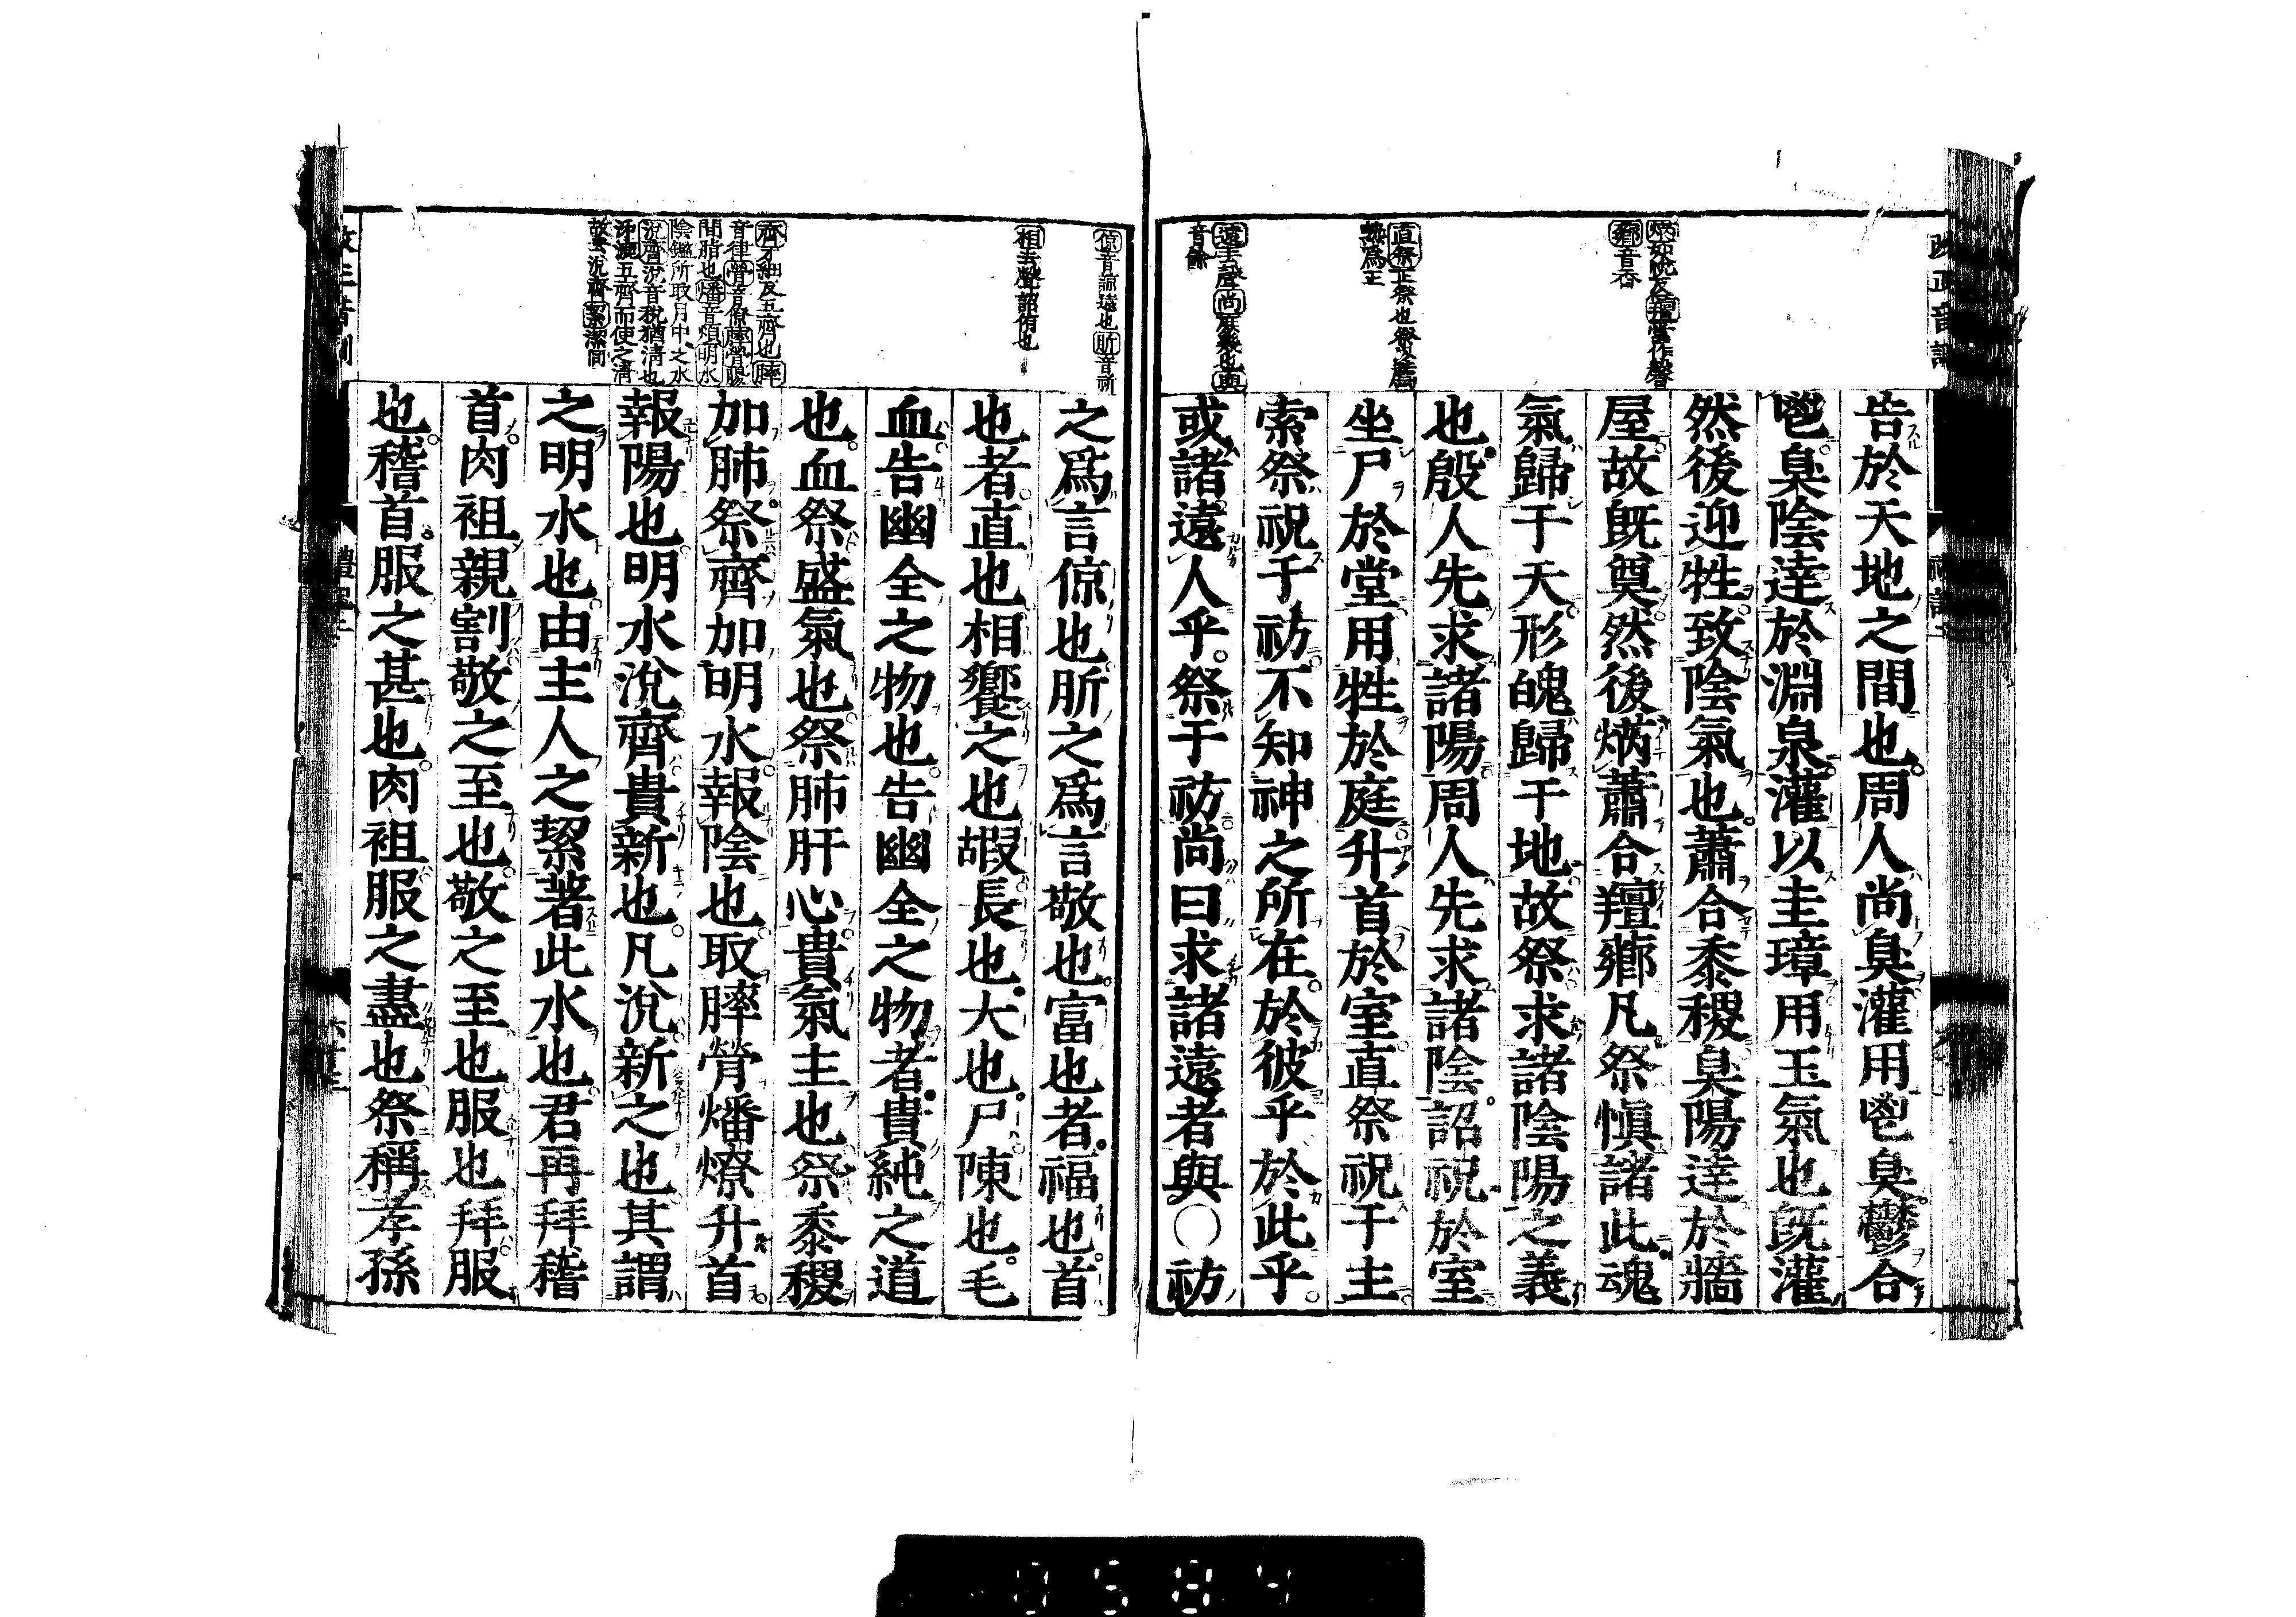 告於天地之間也周人尚臭灌用鬯臭鬱合
鬯臭陰達於淵泉灌以圭璋用玉氣也既灌
然後迎牲致陰氣也蕭合黍稷臭陽達於牆
屋故既奠然後焫蕭合羶薌凡祭慎諸此魂
氣歸于天形魄歸于地故祭求諸陰陽之義
也殷人先求諸陽周人先求諸陰詔祝於室
坐尸於堂用牲於庭升首於室直祭祝于主
索祭祝于祊不知神之所在於彼乎於此乎
或諸遠人乎祭于祊尚曰求諸遠者與○祊
之爲言倞也肵之爲言敬也富也者福也首
也者直也相饗之也嘏長也大也尸陳也毛
血告幽全之物也告幽全之物者貴純之道
也血祭盛氣也祭肺肝心貴氣主也祭黍稷
加肺祭齊加明水報陰也取膟膋燔燎升首
報陽也明水涗齊貴新也凡涗新之也其謂
之明水也由主人之絜著此水也君再拜稽
首肉袒親割敬之至也敬之至也服也拜服
也稽首服之甚也肉袒服之盡也祭稱孝孫
焫如悅反羶當作馨
薌音香
直祭正祭也祭以薦
熟爲正
遠去聲尚庶幾也與
音餘
倞音諒遠也肵音祈
相去聲詔侑也
齊才細反五齊也膟
音律膋音僚膟膋腸
間脂也燔音煩明水
陰鑑所取月中之水
涗齊涗音稅猶清也
泲漉五齊而使之清
故云涗齊絜潔同
0584